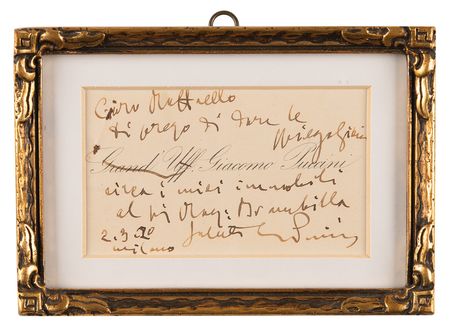 Caro Raffaello
ti prego di dare le
spiegazioni
Grand' Uff. Giacomo Puccini
circa i miei immobili
al Rag: Brambilla
2.3.20 Saluti Puccini
Milano